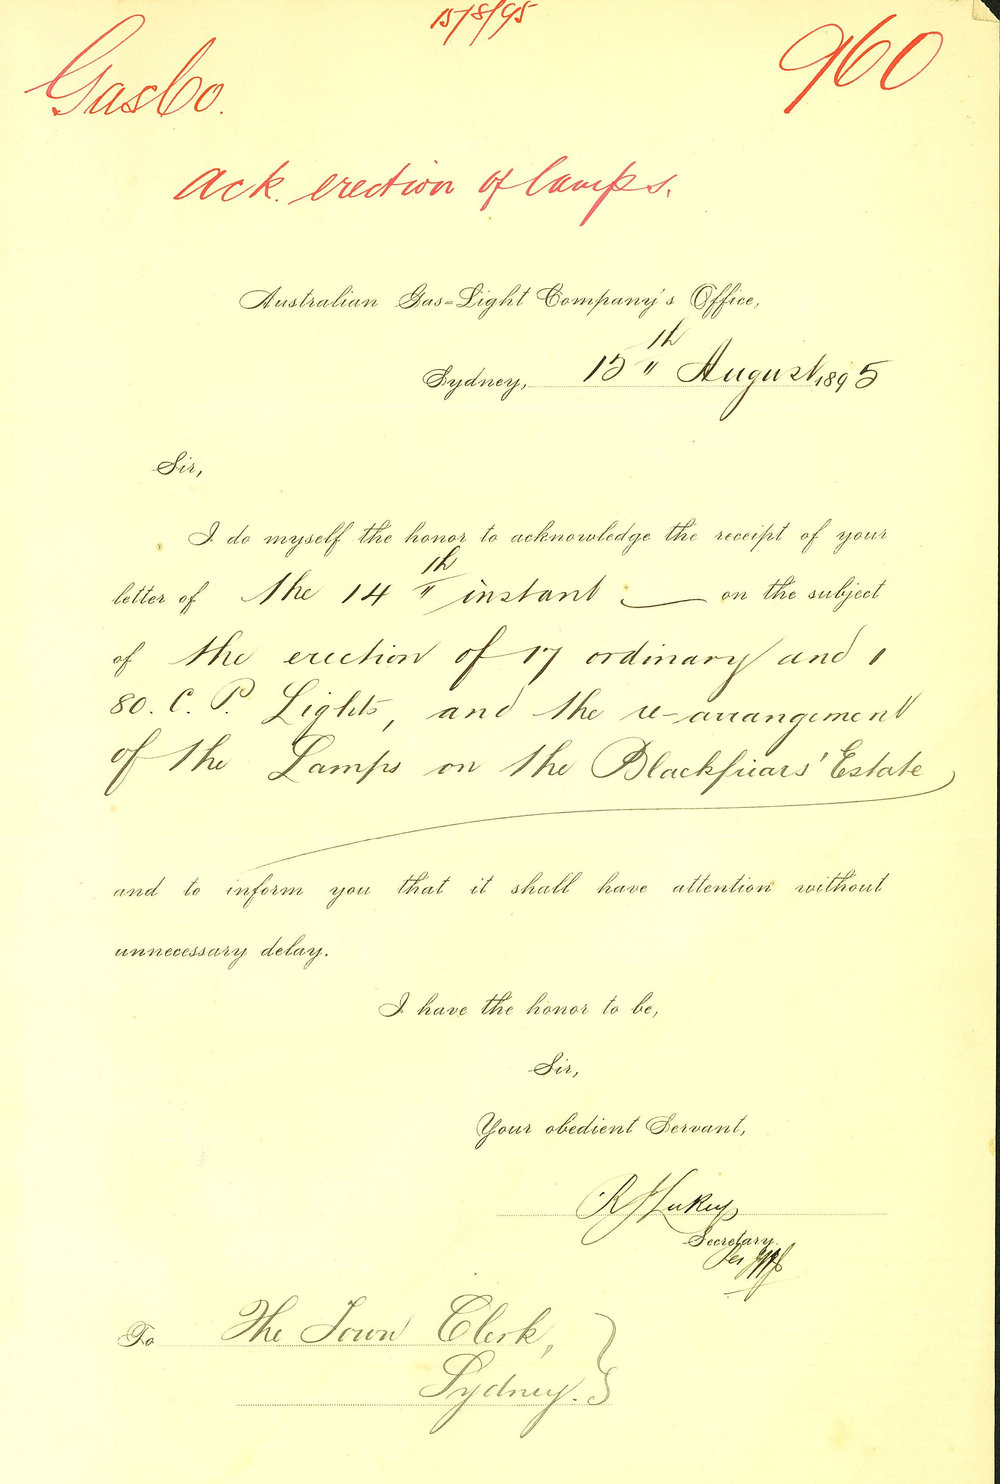 15/8/95
Gas Co.
960
Ack. erection of lamps.
Australian Gas=Light Company's Office,
Sydney, 15th August 1895
Sir,
I do myself the honor to acknowledge the receipt of your
letter of the 14th instant on the subject
of the erection of 17 ordinary and 1
80. C. P. Lights, and the re-arrangement
of the Lamps on the Blackfriars' Estate
and to inform you that it shall have attention without
unnecessary delay.
I have the honor to be,
Sir,
Your obedient Servant,
R J Lukey
Secretary.
Per
To The Town Clerk,
Sydney.